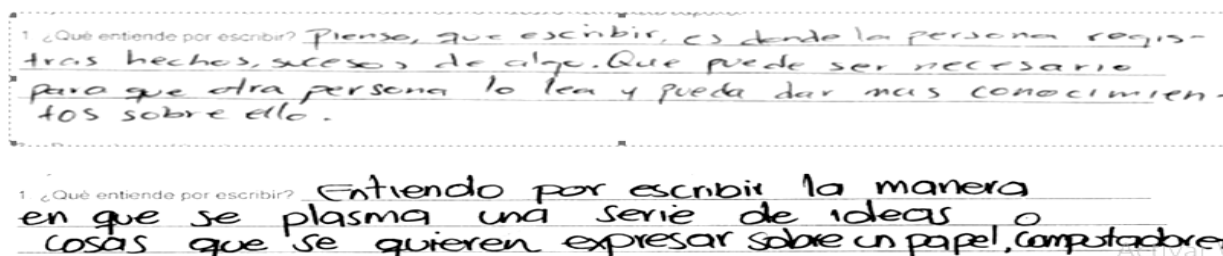 1 ¿Qué entiende por escribir? Pienso, que escribir, es donde la persona regis-
tras hechos, sucesos de algo. Que puede ser necesario
para que otra persona lo lea y pueda dar mas conocimien-
tos sobre ello.
1 ¿Qué entiende por escribir? Entiendo por escribir la manera
en que se plasma una serie de ideas o
cosas que se quieren expresar sobre un papel, computadores